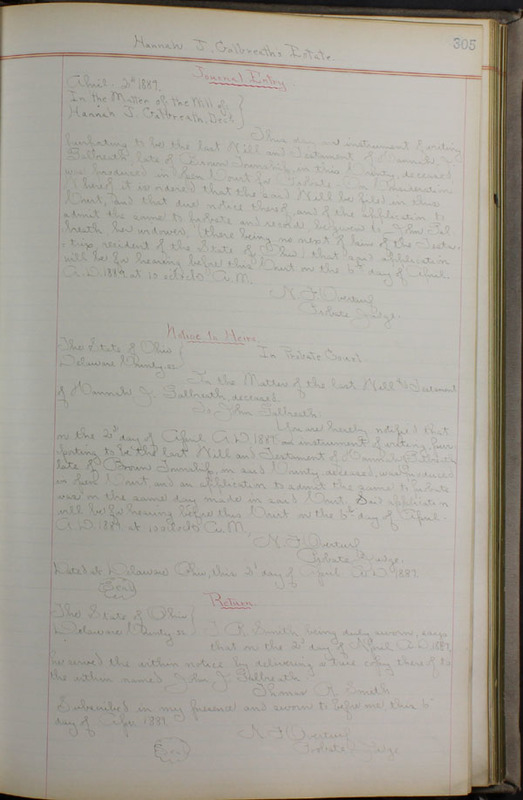 305
Hannah J. Galbreath's Estate
Journal Entry
April 2d 1889.
In the Matter of the Will of
Hannah J. Galbreath, Dec'd
This day an instrument of writing
purporting to be the last Will and Testament of Hannah J.
Galbreath late of Brown Township, in this County, deceased
was produced in open Court for Probate. In Consideration
whereof it is ordered that the said Will be filed in this
Court, and that due notice thereof, and of the application to
admit the same to probate and record, be given to John Gal
breath her widower, (there being no next of kin of the Testa-
trix, resident of the State of Ohio) that said application
will be for hearing before this Court on the 6th day of April
A.D. 1889 at 10 o'clock A.M.
N. F. Overturf
Probate Judge.
Notice to Heirs.
The State of Ohio
Delaware County, ss
In Probate Court.
In the Matter of the last Will and Testament
of Hannah J. Galbreath, deceased.
To John Galbreath:
You are hereby notified that
on the 2d day of April A.D. 1889 an instrument of writing pur-
porting to be the last Will and Testament of Hannah J. Galbreath
late of Brown Township, in said County, deceased, was produced
in open Court and an application to admit the same to probate
was on the same day made in said Court. Said application
will be for hearing before this Court on the 6th day of April
A.D. 1889 at 10 o'clock A.M.
N. F. Overturf
Probate Judge.
Dated at Delaware Ohio, this 2d day of April A.D. 1889
Seal
Return.
The State of Ohio
Delaware County ss
R. Smith, being duly sworn, says
that on the 2d day of April A.D. 1889,
he served the within notice by delivering a true copy thereof to
the within named John J. Galbreath
Thomas R. Smith
Subscribed in my presence and sworn to before me this 6th
day of Apr. 1889.
N. F. Overturf
Probate Judge
Seal